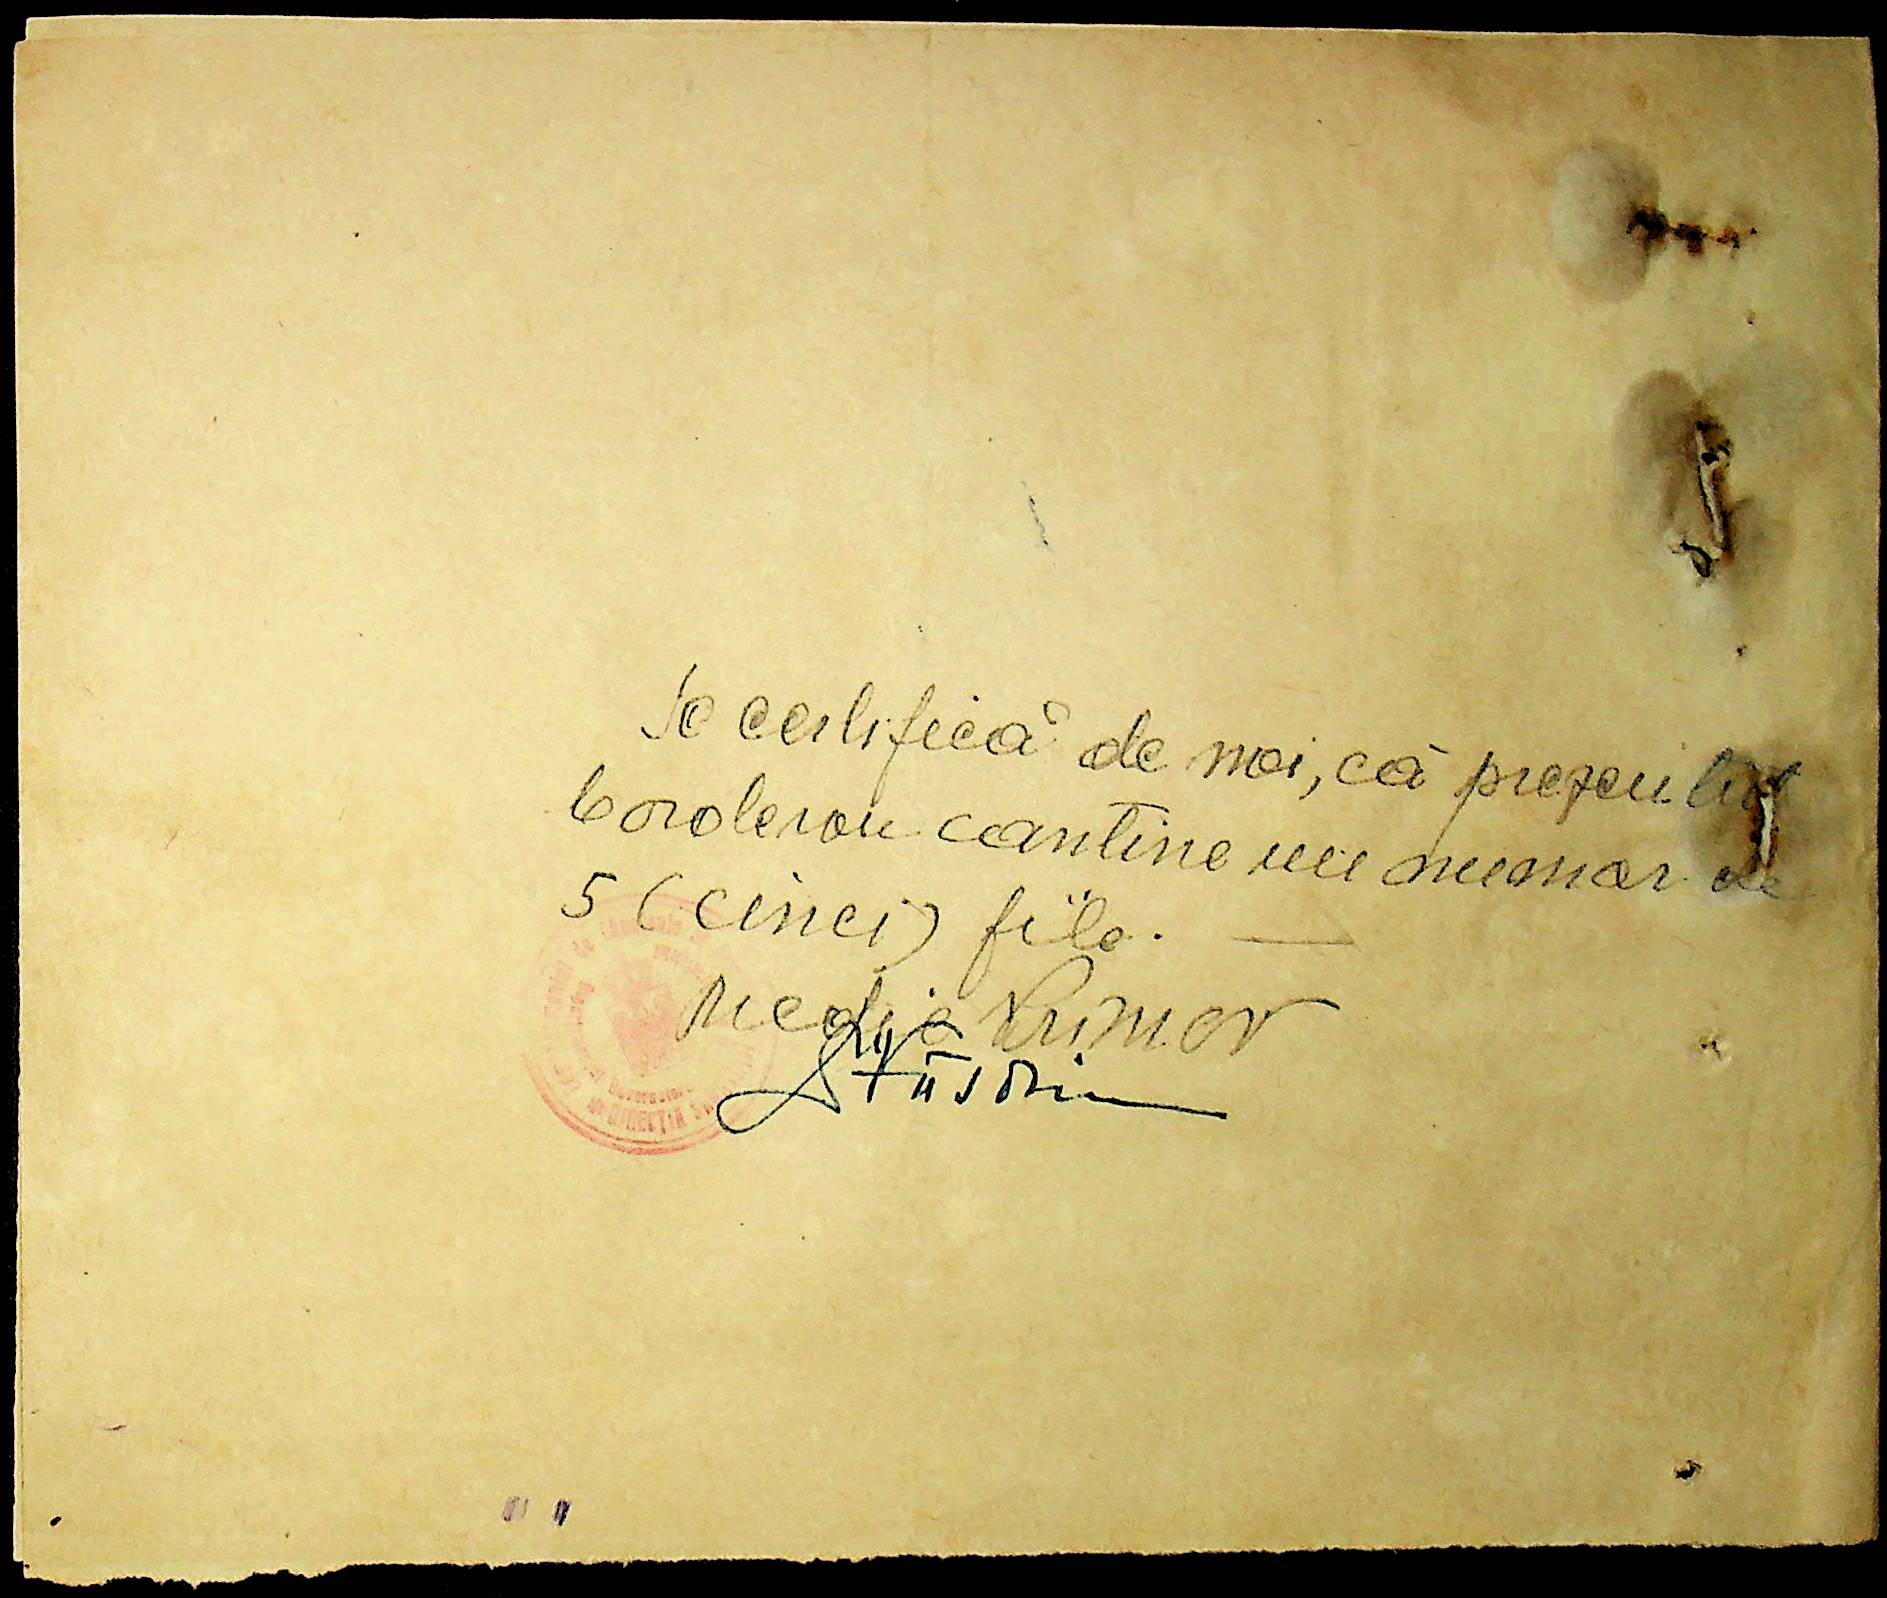 Se certifică de noi, că prezentul
borderou conține un numar de
5 (cinci) file. —
Medic Primar
DIRECȚIA